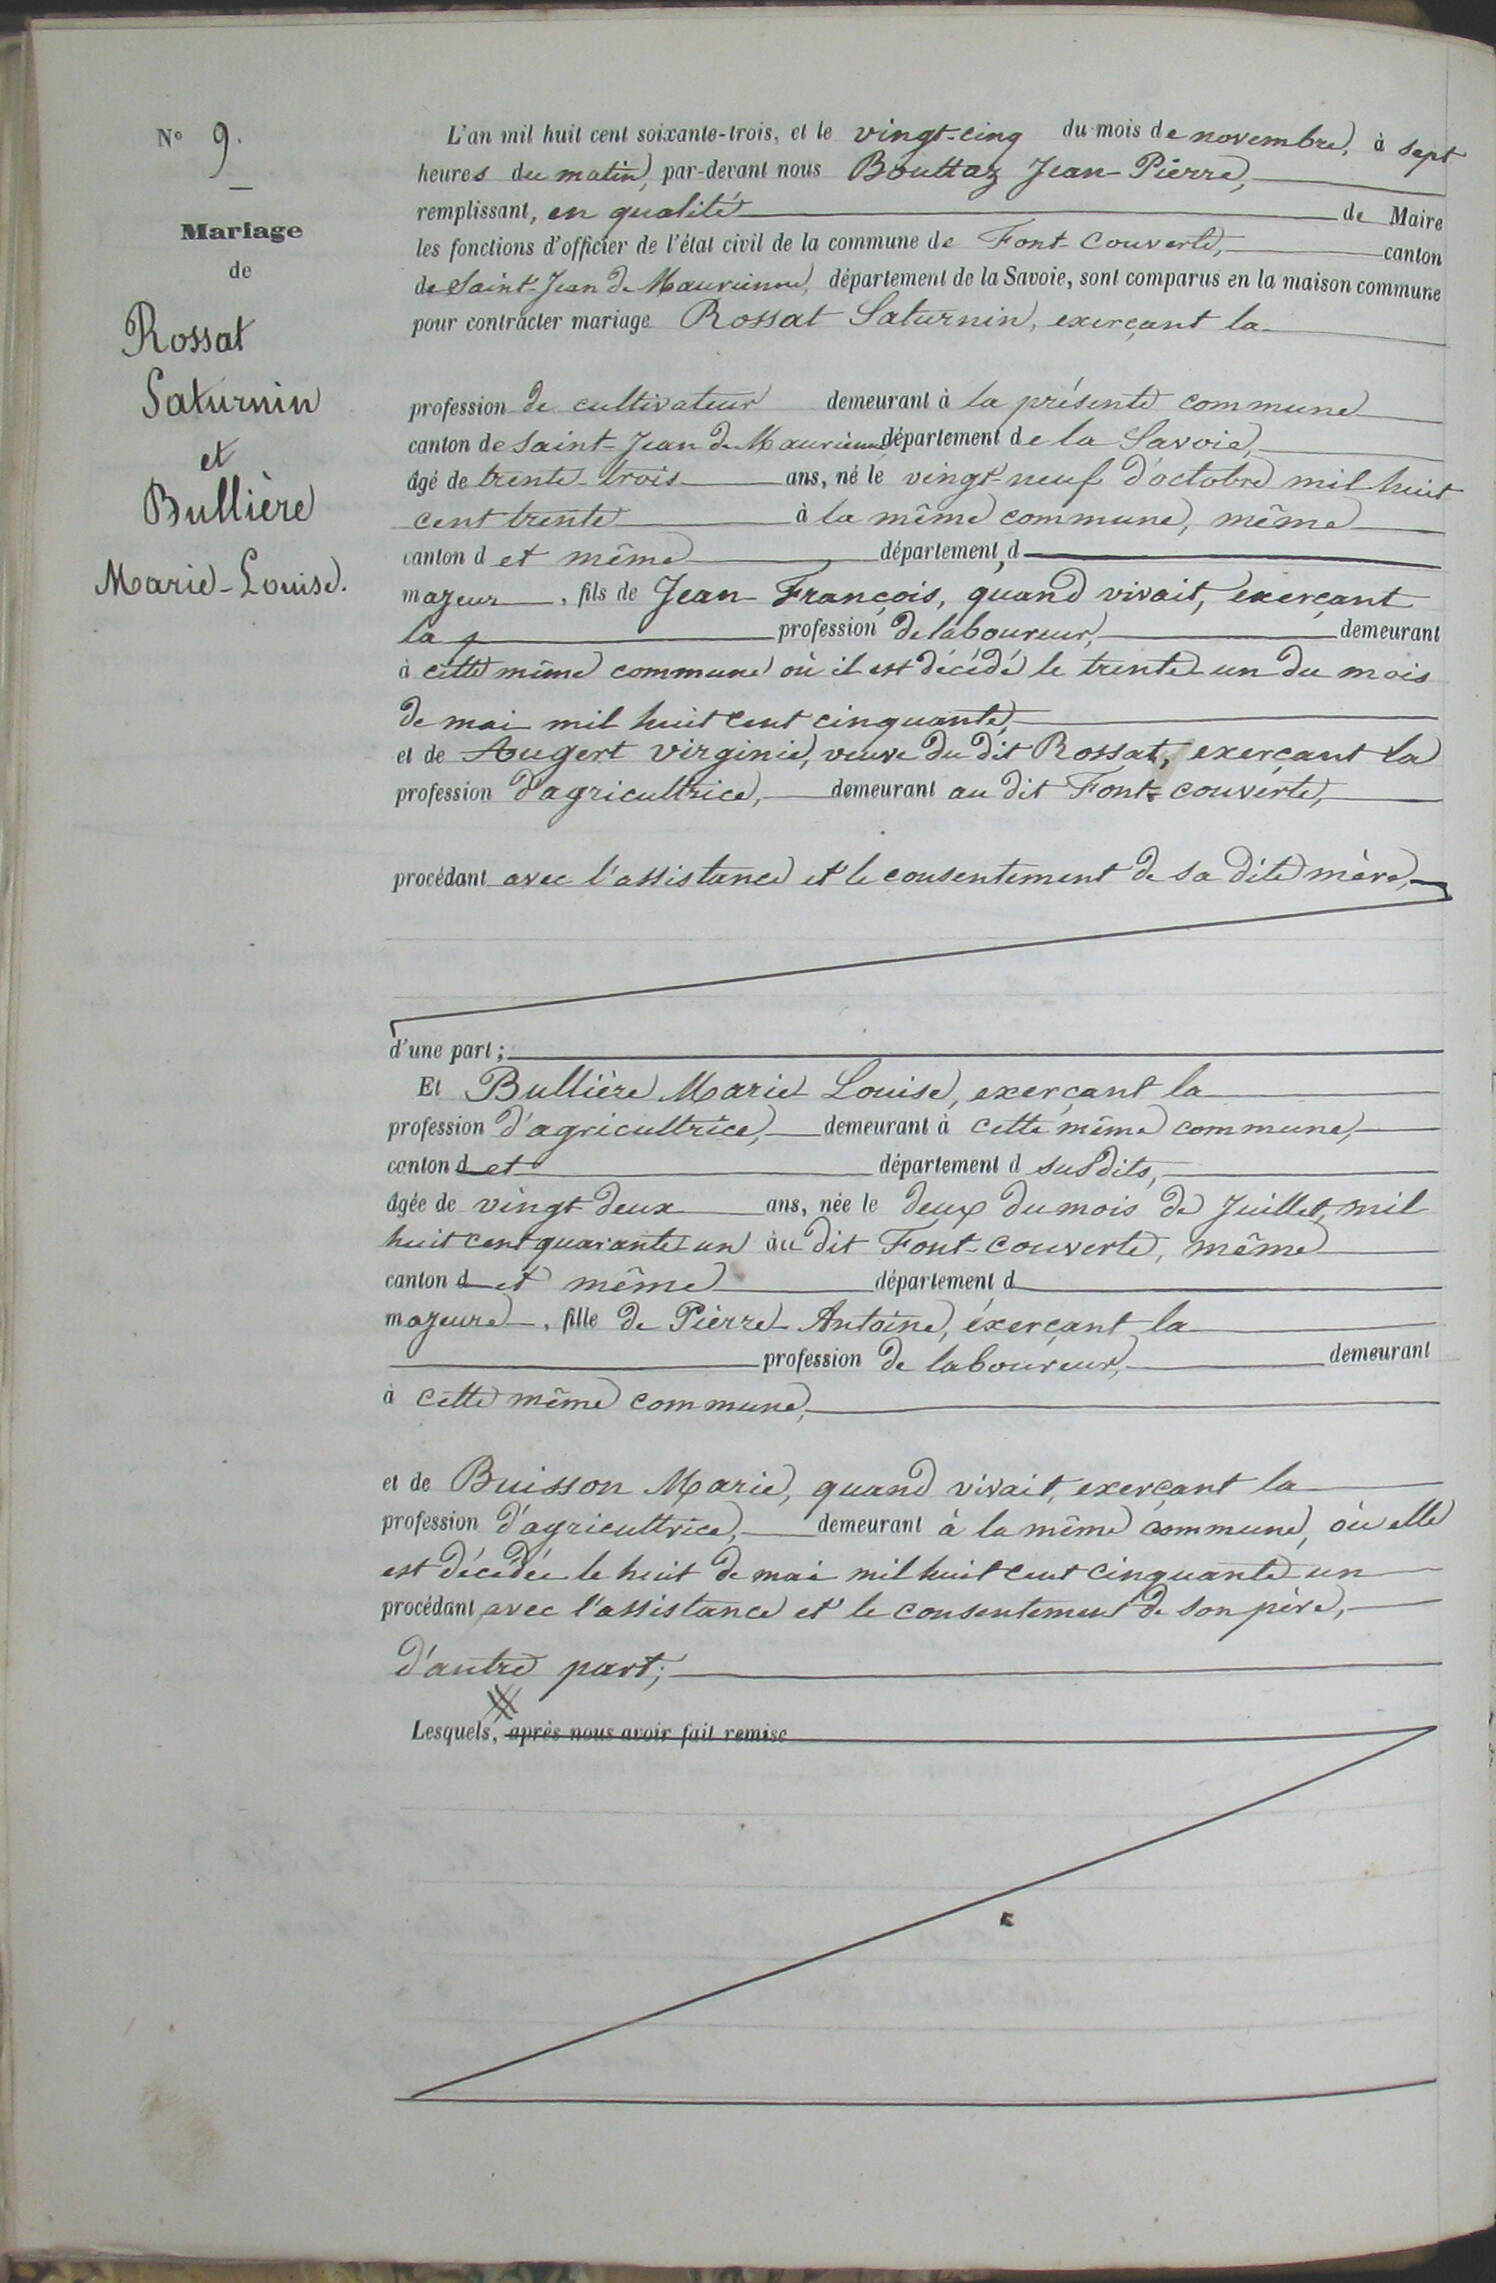 N° 9.
Mariage
de
Rossat
Saturnin
et
Bullière
Marie-Louise.
L'an mil huit cent soixante-trois, et le vingt-cinq du mois de novembre, à sept
heures du matin, par-devant nous Bouttaz Jean-Pierre,
remplissant, en qualité de Maire
les fonctions d'officier de l'état civil de la commune de Font-Couverte, canton
de Saint-Jean de Maurienne, département de la Savoie, sont comparus en la maison commune
pour contracter mariage Rossat Saturnin, exerçant la
profession de cultivateur demeurant à la présente commune
canton de Saint-Jean de Maurienne département de la Savoie,
âgé de trente-trois ans, né le vingt-neuf d'octobre mil huit
cent trente à la même commune, même
canton d et même département d
majeur, fils de Jean-François, quand vivait, exerçant
la profession de laboureur, demeurant
à cette même commune où il est décédé le trente un du mois
de mai mil huit cent cinquante,
et de Augert virginie, veuve du dit Rossat, exerçant la
profession d'agricultrice, demeurant au dit Font-couverte,
procédant avec l'assistance et le consentement de sa dite mère,
d'une part;
Et Bullière Marie Louise, exerçant la
profession d'agricultrice, demeurant à cette même commune,
canton d et département d susdits,
âgée de vingt-deux ans, née le deux du mois de Juillet, mil
huit cent quarante un au dit Font-couverte, même
canton d et même département d
majeure, fille de Pierre-Antoine, éxerçant la
profession de laboureur, demeurant
à cette même commune,
et de Buisson Marie, quand vivait, exerçant la
profession d'agricultrice, demeurant à la même commune, où elle
est décédée le huit de mai mil huit cent cinquante un
procédant avec l'assistance et le consentement de son père,
d'autre part;
Lesquels, après nous avoir fait remise